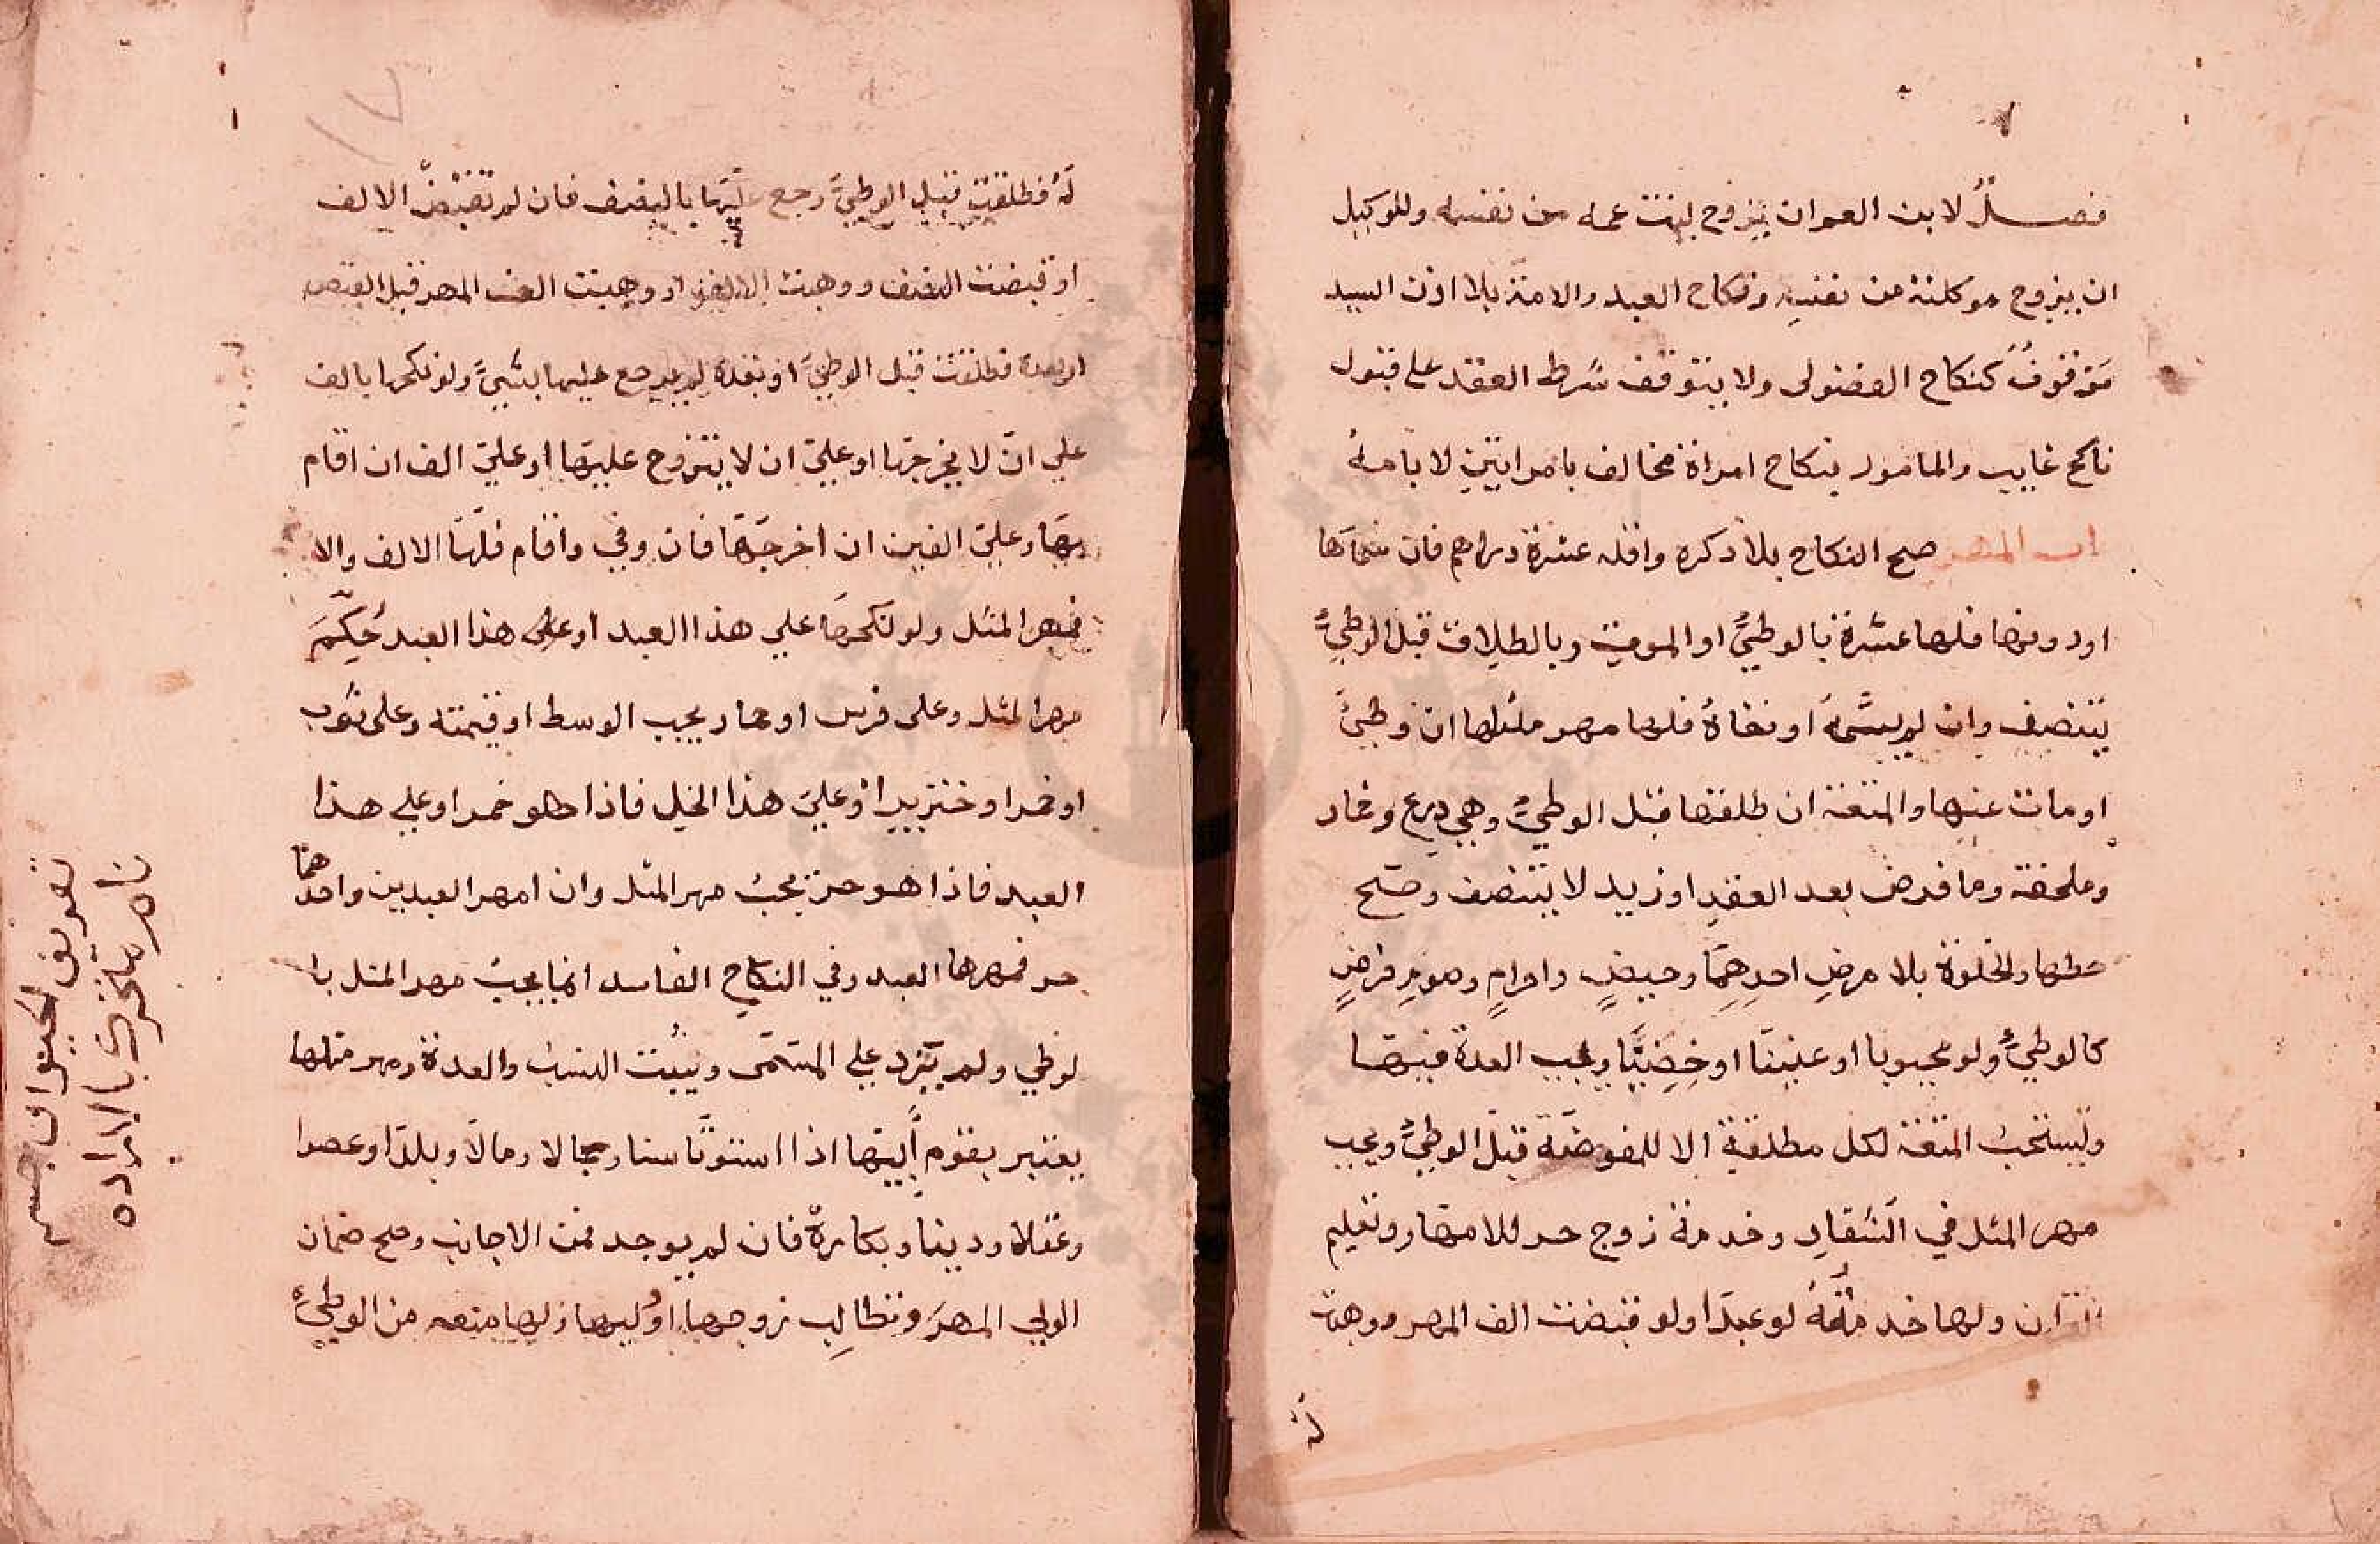 فصل لابن العم ان يزوج بنت عمه من نفسه وللوكيل
ان يزوج موكلته من نفسه ونكاح العبد والامة بلا اذن السيد
موقوف كنكاح الفضولى ولا يتوقف شرط العقد على قبول
ناكح غايب والمامور بنكاح امراة مخالف بامراتين لا بامة
باب المهر صح النكاح بلا ذكره واقله عشرة دراهم فان سماها
او دونها فلها عشرة بالوطئ او الموت وبالطلاق قبل الوطئ
يتنصف وان لم يسمه او نفاه فلها مهر مثلها ان وطئ
او مات عنها والمتعة ان طلقها قبل الوطئ وهي درع وخمار
وملحفة وما فرض بعد العقد او زيد لا يتنصف وصح
حطها والخلوة بلا مرض احدهما وحيض واحرام وصوم فرض
كالوطئ ولو مجبوبا او عنينا او خصيا ويجب العدة فيها
وتستحب المتعة لكل مطلقة الا للمفوضة قبل الوطئ ويجب
مهر المثل في الشغار وخدمة زوج حر للامهار وتعليم
القران ولها خدمته لو عبدا ولو قبضت الف المهر ووهبت
له
له فطلقت قبل الوطئ رجع عليها بالنصف فان لم تقبض الالف
او قبضت النصف ووهبت الالف او وهبت العرض المهر قبل القبض
او بعده فطلقت قبل الوطئ او بعده لم يرجع عليها بشيئ ولو نكحها بالف
على ان لا يخرجها او على ان لا يتزوج عليها او على الف ان اقام
بها وعلى الفين ان اخرجها فان وفي واقام فلها الالف والا
فمهر المثل ولو نكحها على هذا العبد او على هذا العبد حكم
مهر المثل وعلى فرس او حمار يجب الوسط او قيمته وعلى ثوب
او خمر او خنزير او على هذا الخل فاذا هو خمر او على هذا
العبد فاذا هو حر يجب مهر المثل وان امهر العبدين واحدهما
حر فمهرها العبد وفي النكاح الفاسد انما يجب مهر المثل با
لوطي ولم يزد على المسمى ويثبت النسب والعدة ومهر مثلها
يعتبر بقوم ابيها اذا استوتا سنا وجمالا ومالا وبلدا وعصرا
وعقلا ودينا وبكارة فان لم يوجد فمن الاجانب وصح ضمان
الولي المهر وتطالب زوجها او وليها ولها منعه من الوطئ